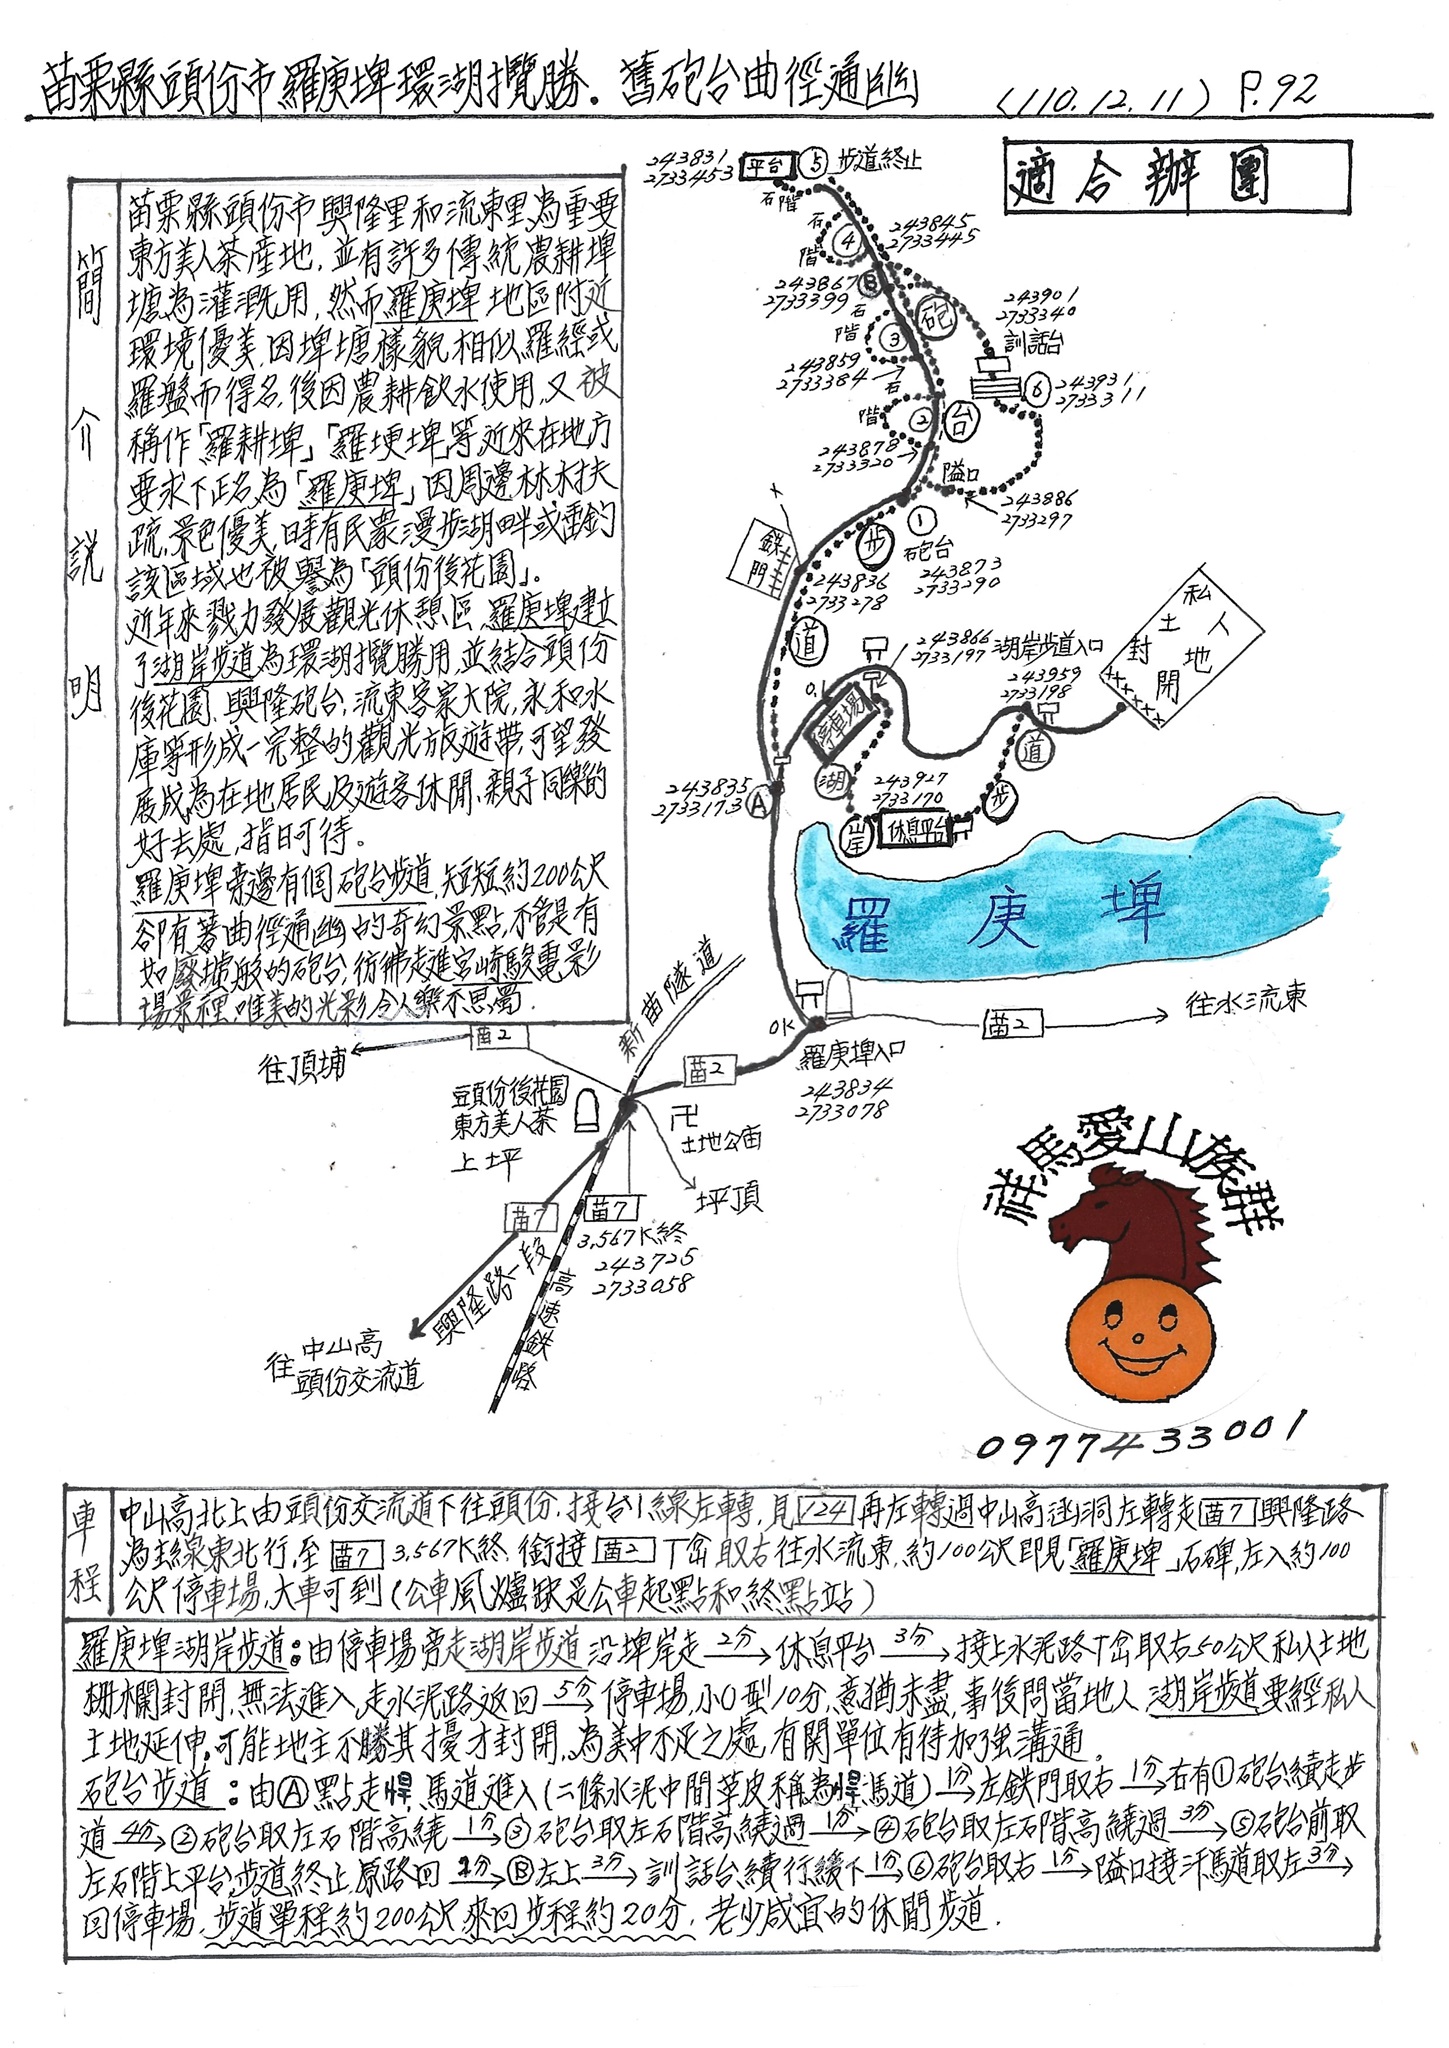 苗栗縣頭份市羅庚埤環湖攬勝.舊砲台曲徑通幽 (110.12.11) P.92
適合辦團
簡介說明
苗栗縣頭份市興隆里和流東里為重要
東方美人茶產地,並有許多傳統農耕埤
塘為灌溉用,然而羅庚埤地區附近
環境優美,因埤塘樣貌相似羅經或
羅盤而得名,後因農耕飲水使用,又被
稱作「羅耕埤」「羅埂埤」等,近來在地方
要求下正名為「羅庚埤」因周邊林木扶
疏,景色優美,時有民眾漫步湖畔或垂釣
該區域也被譽為「頭份後花園」。
近年來戮力發展觀光休憩區,羅庚埤建立
了湖岸步道為環湖攬勝用,並結合頭份
後花園.興隆砲台,流東客家大院,永和水
庫等形成一完整的觀光旅遊帶,可望發
展成為在地居民及遊客休閒、親子同樂的
好去處,指日可待。
羅庚埤旁邊有個砲台步道,短短約200公尺
卻有著曲徑通幽的奇幻景點,不管是有
如廢墟般的砲台,彷彿走進宮崎駿電影
場景裡,唯美的光影令人樂不思蜀.
243831
2733453
平台
⑤
步道終止
石階
石階
④
243845
2733445
243867
2733399
Ⓑ
砲
石階
③
243901
2733340
訓話台
243859
2733384
⑥
243931
2733311
石階
②
台
243878
2733320
隘口
243886
2733297
鉄門
步
①
砲台
243873
2733290
243836
2733278
道
私人土地封閉
243866
2733197
湖岸步道入口
243959
2733198
0.1
停車場
湖
道
243927
2733170
步
243835
2733173
Ⓐ
岸
休息平台
羅庚埤
新苗隧道
0K
苗2
往水流東
苗2
往頂埔
苗2
羅庚埤入口
243834
2733078
頭份後花園
東方美人茶
上坪
卍
土地公庙
坪頂
苗7
苗7
3,567K終
243725
2733058
興隆路一段
高速鉄路
往中山高
頭份交流道
祥馬愛山族群
0977433001
車程
中山高北上由頭份交流道下往頭份,接台1線左轉,見124再左轉過中山高涵洞左轉走苗7興隆路
為主線東北行,至苗7 3,567K終,銜接苗2丁岔取右往水流東,約100公尺即見「羅庚埤」石碑,左入約100
公尺停車場,大車可到(公車風爐缺是公車起點和終點站)
羅庚埤湖岸步道:由停車場旁走湖岸步道沿埤岸走2分→休息平台3分→接上水泥路丁岔取右50公尺私人土地
柵欄封閉,無法進入,走水泥路返回5分→停車場,小O型10分,意猶未盡,事後問當地人,湖岸步道要經私人
土地延伸,可能地主不勝其擾才封閉,為美中不足之處,有関單位有待加強溝通。
砲台步道:由Ⓐ點走悍馬道進入(二條水泥中間草皮稱為悍馬道)1分→左鉄門取右1分→右有①砲台續走步
道4分→②砲台取左石階高繞1分→③砲台取左石階高繞過1分→④砲台取左石階高繞過3分→⑤砲台前取
左石階上平台,步道終止,原路回2分→Ⓑ左上3分→訓話台續行緩下1分→⑥砲台取右1分→隘口接汗馬道取左3分→
回停車場,步道單程約200公尺,來回步程約20分,老少咸宜的休閒步道.